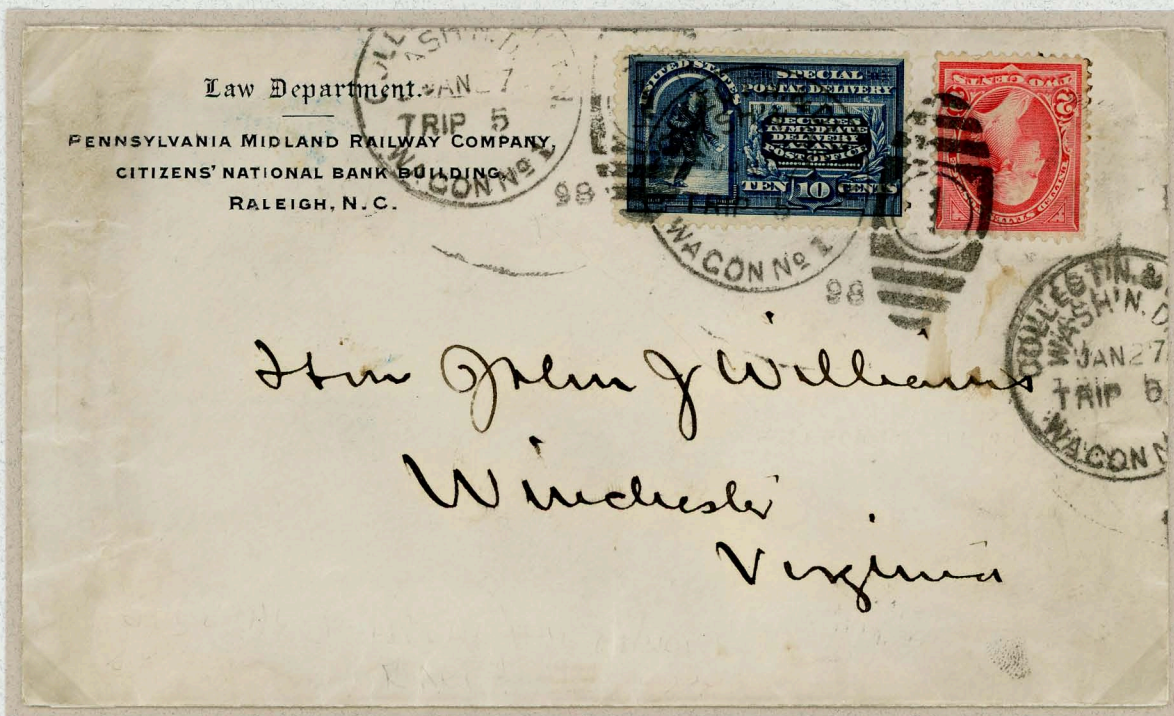 Law Department.
PENNSYLVANIA MIDLAND RAILWAY COMPANY,
CITIZENS' NATIONAL BANK BUILDING,
RALEIGH, N.C.
JAN 27
TRIP 5
WAGON Nº 1
98
UNITED STATES
SPECIAL
POSTAL DELIVERY
SECURES
IMMEDIATE
DELIVERY
AT ANY
POST OFFICE
TEN 10 CENTS
TRIP 5
WAGON Nº 1
98
TWO CENTS
2 2
UNITED STATES
COLLECT'N. &
WASH'N. D
JAN 27
TRIP 5
WAGON N
Hon John J Williams
Winchester
Virginia